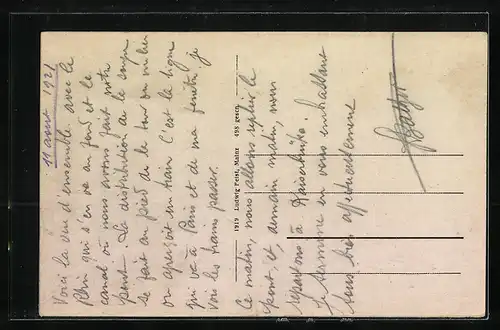 11 août 1921
Voici la vue d'ensemble avec le
Rhin qui s'en va au fond et le
canal où nous avons fait notre
pont. La distribution de la soupe
se fait au pied de la tour au milieu
on aperçoit un train c'est la ligne
qui va à Paris et de ma fenêtre je
vois les trains passer.
Ce matin, nous allons replier le
pont et, demain matin, nous
repartons à Kaiserbrücke.
Je termine en vous embrassant
tous bien affectueusement
1919 Ludwig Feist, Mainz 493 gesch.